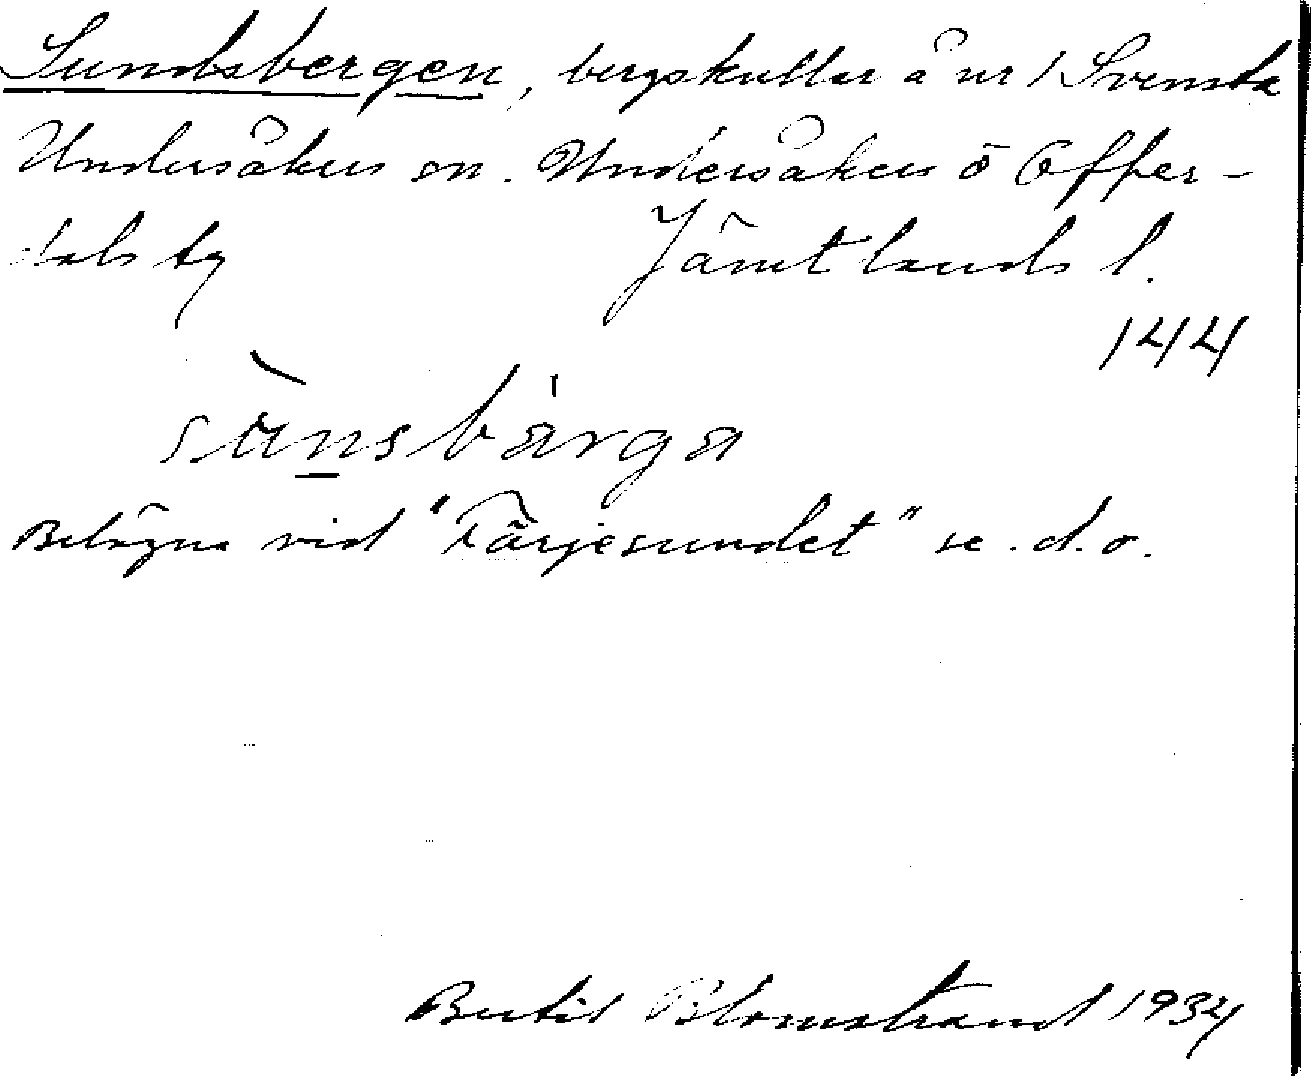 Sundsbergen, bergskullar å nr 1 Svensta
Undersåkers sn. Undersåkers o Offer-
dals tg Jämtlands l.
144
sùnsbárga
Belägna vid "Färjesundet" se. d.o.
Bertil Blomstrand 1934